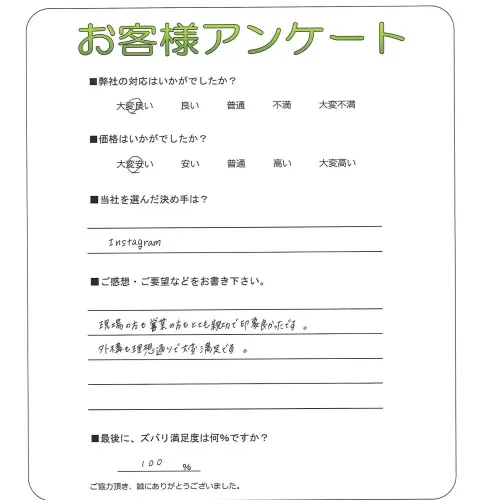 お客様アンケート
■弊社の対応はいかがでしたか？
大変良い 良い 普通 不満 大変不満
■価格はいかがでしたか？
大変安い 安い 普通 高い 大変高い
■当社を選んだ決め手は？
Instagram
■ご感想・ご要望などをお書き下さい。
現場の方も営業の方もとても親切で印象良かったです。
外構も理想通りで大変満足です。
■最後に、ズバリ満足度は何％ですか？
100 %
ご協力頂き、誠にありがとうございました。